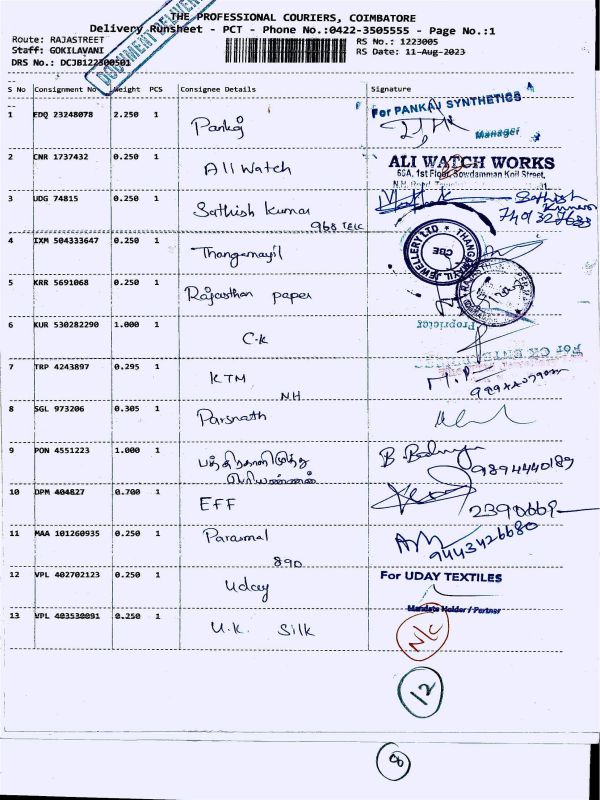 THE PROFESSIONAL COURIERS, COIMBATORE
Delivery Runsheet - PCT - Phone No.:0422-3505555 - Page No.:1
Route: RAJASTREET
RS No.: 1223005
Staff: GOKILAVANI
RS Date: 11-Aug-2023
DRS No.: DCJB122300501
S No Consignment No Weight PCS Consignee Details Signature
1 EDQ 23248078 2.250 1 Pankaj
For PANKAJ SYNTHETICS
Manager
2 CNR 1737432 0.250 1 Ali Watch
ALI WATCH WORKS
1st Floor, Sowdamman Koil Street,
3 UDG 74815 0.250 1 Sathish Kumar
Sathish
Kumar
4 IXM 504333647 0.250 1 Thangamayil
THANGAMAYIL JEWELLERY LTD
CBE
5 KRR 5691068 0.250 1 Rajasthan paper
Proprietor
6 KUR 530282290 1.000 1 C.K
For CK ENTERPRISES
7 TRP 4243897 0.295 1 KTM
NH
M.P
8 SGL 973206 0.305 1 Parsnath
9 PON 4551223 1.000 1
9894440189
10 DPM 404827 0.700 1 EFF
11 MAA 101260935 0.250 1 Parasmal
890
9443426680
12 VPL 402702123 0.250 1 Uday
For UDAY TEXTILES
Mandate Holder / Partner
13 VPL 403530091 0.250 1 U.K. Silk
N/C
12
8